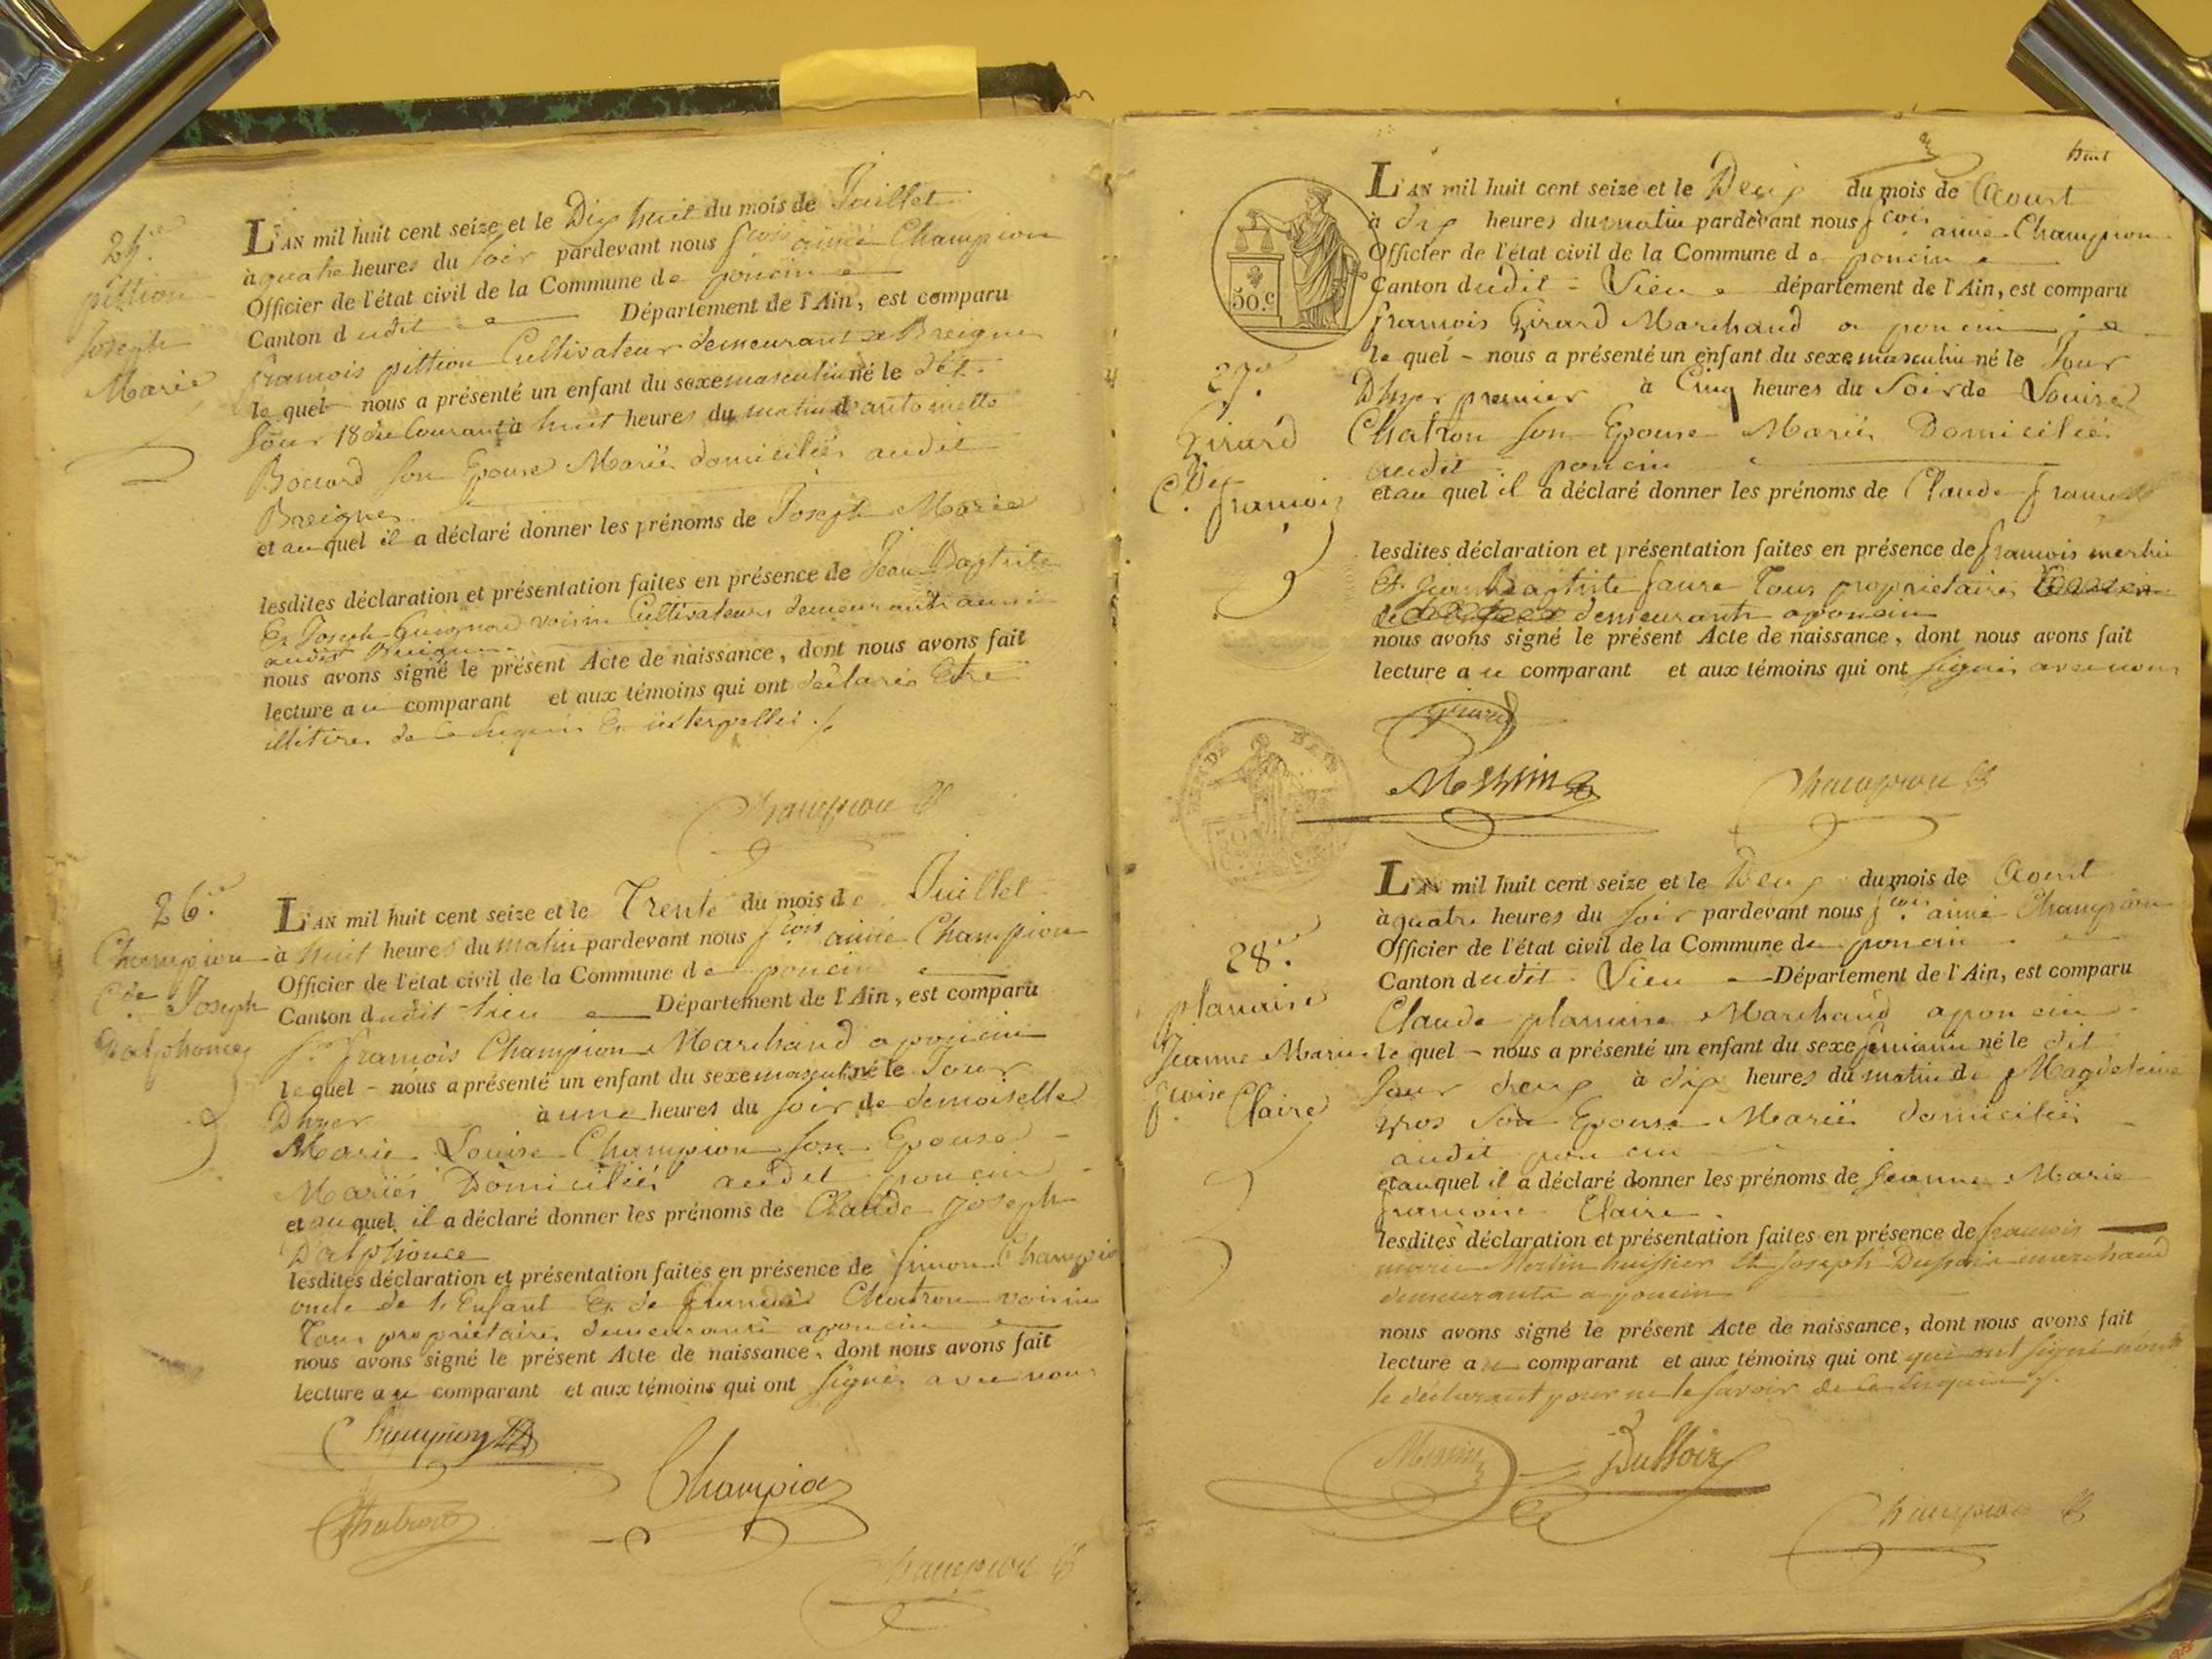 25.e
pittion
Joseph
Marie
L'AN mil huit cent seize et le Dix huit du mois de Juillet
à quatre heures du soir pardevant nous f.cois aimé Champion
Officier de l'état civil de la Commune de poncin
Canton dudit Département de l'Ain, est comparu
francois pittion Cultivateur demeurant a Breignes
le quel nous a présenté un enfant du sexe masculin né le dit
Jour 18 du Courant à huit heures du matin d'antoinette
Boccard son Epouse Mariés domiciliés audit
Breignes
et au quel il a déclaré donner les prénoms de Joseph Marie
lesdites déclaration et présentation faites en présence de Jean Baptiste
Et Joseph Guignard voisins Cultivateurs demeurants aussi
audit Breignes
nous avons signé le présent Acte de naissance, dont nous avons fait
lecture au comparant et aux témoins qui ont déclarés Etre
illitirés de ce Enquis Et interpellés ./.
Champion
26.e
Champion
C.de Joseph
D'alphonce
L'AN mil huit cent seize et le Trente du mois de Juillet
à huit heures du matin pardevant nous f.cois aimé Champion
Officier de l'état civil de la Commune de poncin
Canton dudit lieu Département de l'Ain, est comparu
S.r francois Champion Marchand a poncin
le quel - nous a présenté un enfant du sexe mascul. né le Jour
D'hyer à une heures du soir de demoiselle
Marie Louise Champion son Epouse
Mariés Domiciliés audit poncin
et au quel il a déclaré donner les prénoms de Claude Joseph
D'alphonce
lesdites déclaration et présentation faites en présence de simon Champion
oncle de l'Enfant Et de francois Chatron voisin
Tous propriétaires demeurants a poncin
nous avons signé le présent Acte de naissance, dont nous avons fait
lecture au comparant et aux témoins qui ont signés avec nous
Champion
Champion
Champion
huit
50.c
27.e
Girard
C.de
francois
L'AN mil huit cent seize et le Deux du mois de Aoust
à dix heures du matin pardevant nous f.cois aimé Champion
Officier de l'état civil de la Commune de poncin
Canton dudit - Lieu département de l'Ain, est comparu
francois Girard Marchand a poncin
le quel - nous a présenté un enfant du sexe masculin né le Jour
D'hyer premier à Cinq heures du Soir de Louise
Chatron son Epouse Mariés Domiciliés
audit poncin
et au quel il a déclaré donner les prénoms de Claude francois
lesdites déclaration et présentation faites en présence de francois merlin
Et Jean Baptiste faure Tous propriétaires
demeurants a poncin
nous avons signé le présent Acte de naissance, dont nous avons fait
lecture au comparant et aux témoins qui ont signés avec nous
Girard
Champion
28.e
planaise
Jeanne Marie
f.coise Claire
L'AN mil huit cent seize et le Deux du mois de Aoust
à quatre heures du soir pardevant nous f.cois aimé Champion
Officier de l'état civil de la Commune de poncin
Canton dudit - Lieu Département de l'Ain, est comparu
Claude planaise Marchand a poncin
le quel - nous a présenté un enfant du sexe feminin né le dit
Jour deux à dix heures du matin de Magdeleine
Gros son Epouse Mariés domiciliés
audit poncin
et au quel il a déclaré donner les prénoms de Jeanne Marie
francoise Claire.
lesdites déclaration et présentation faites en présence de francois
marie Merlin huissier Et Joseph Dussoir marchand
demeurants a poncin
nous avons signé le présent Acte de naissance, dont nous avons fait
lecture au comparant et aux témoins qui ont qui ont signé non
le déclarant pour ne le savoir de ce Enquis ./.
Dussoir
Champion